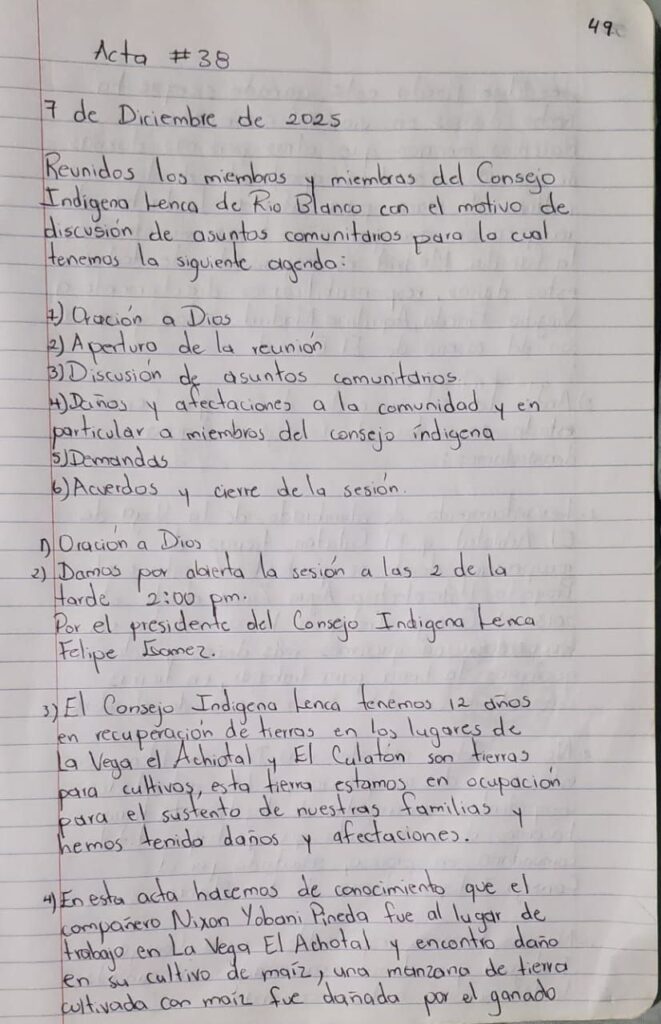 49
Acta # 38
7 de Diciembre de 2025
Reunidos los miembros y miembras del Consejo
Indigena Lenca de Rio Blanco con el motivo de
discusión de asuntos comunitarios para lo cual
tenemos la siguiente agenda:
1) Oración a Dios
2) Apertura de la reunión
3) Discusión de asuntos comunitarios
4) Daños y afectaciones a la comunidad y en
particular a miembros del consejo indígena
5) Demandas
6) Acuerdos y cierre de la sesión.
1) Oración a Dios
2) Damos por abierta la sesión a las 2 de la
tarde 2:00 pm.
Por el presidente del Consejo Indigena Lenca
Felipe
3) El Consejo Indigena Lenca tenemos 12 años
en recuperación de tierras en los lugares de
La Vega el Achiotal y El Culatón son tierras
para cultivos, esta tierra estamos en ocupación
para el sustento de nuestras familias y
hemos tenido daños y afectaciones.
4) En esta acta hacemos de conocimiento que el
compañero Nixon Yobani Pineda fue al lugar de
trabajo en La Vega El Achotal y encontro daño
en su cultivo de maíz, una manzana de tierra
cultivada con maíz fue dañada por el ganado